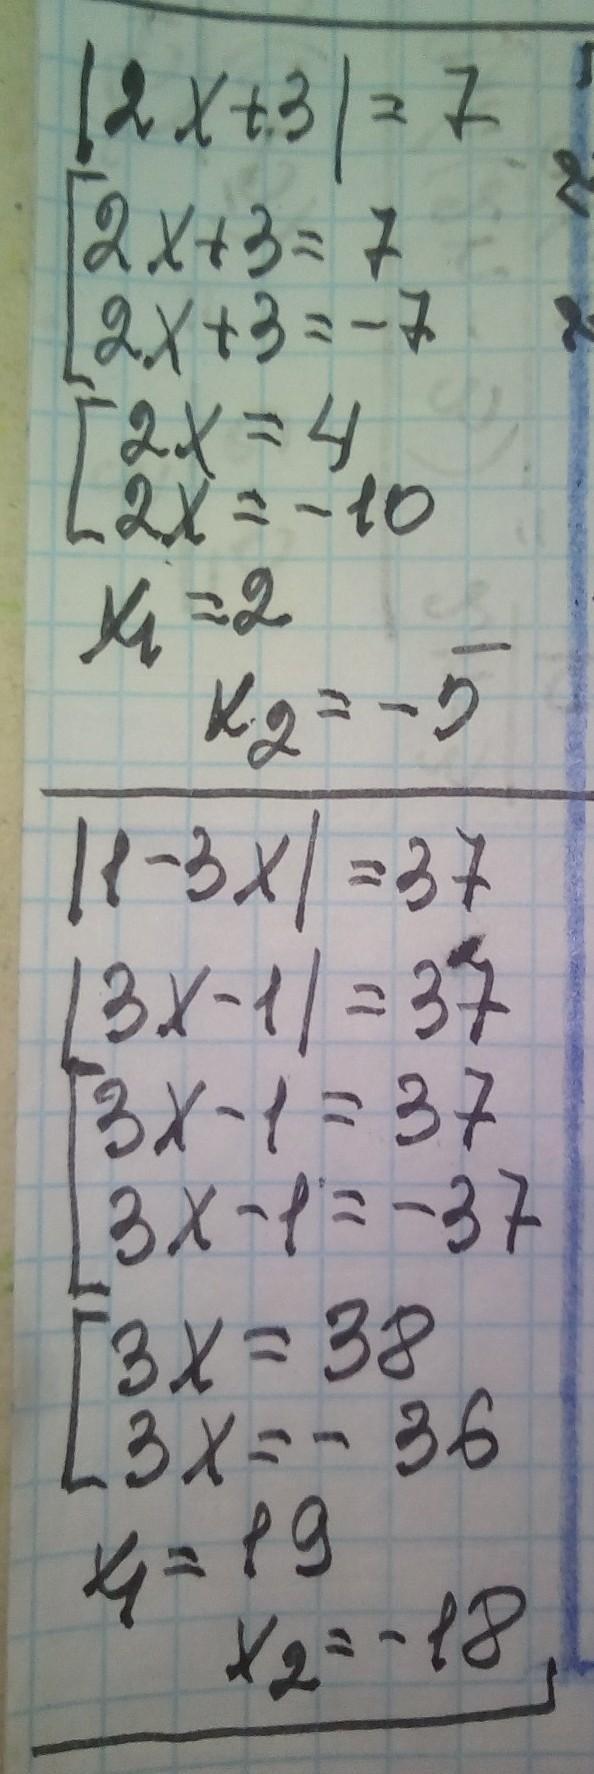 |2x+3| = 7
2x+3 = 7
2x+3 = -7
2x = 4
2x = -10
x1 = 2
x2 = -5
|1-3x| = 37
|3x-1| = 37
3x-1 = 37
3x-1 = -37
3x = 38
3x = - 36
x1 = 19
x2 = -18